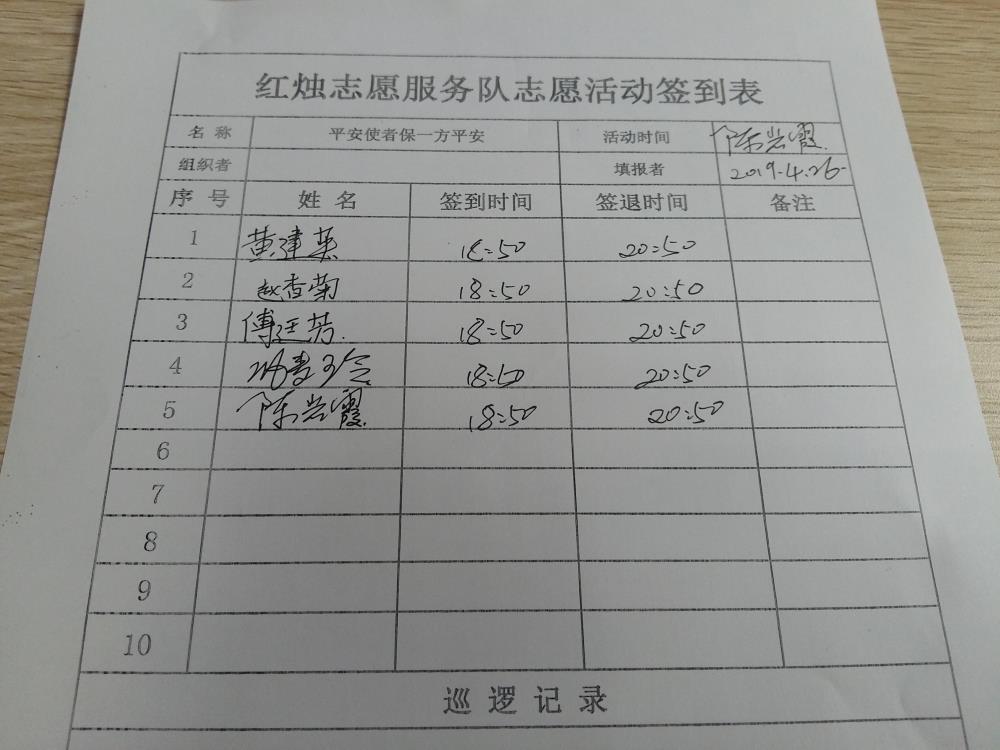 红烛志愿服务队志愿活动签到表
名 称 平安使者保一方平安 活动时间 陈岩霞
组织者 填报者 2019.4.26
序 号 姓 名 签到时间 签退时间 备注
1 黄建英 18:50 20:50
2 赵杏菊 18:50 20:50
3 傅廷芳 18:50 20:50
4 18:50 20:50
5 陈岩霞 18:50 20:50
6
7
8
9
10
巡 逻 记 录